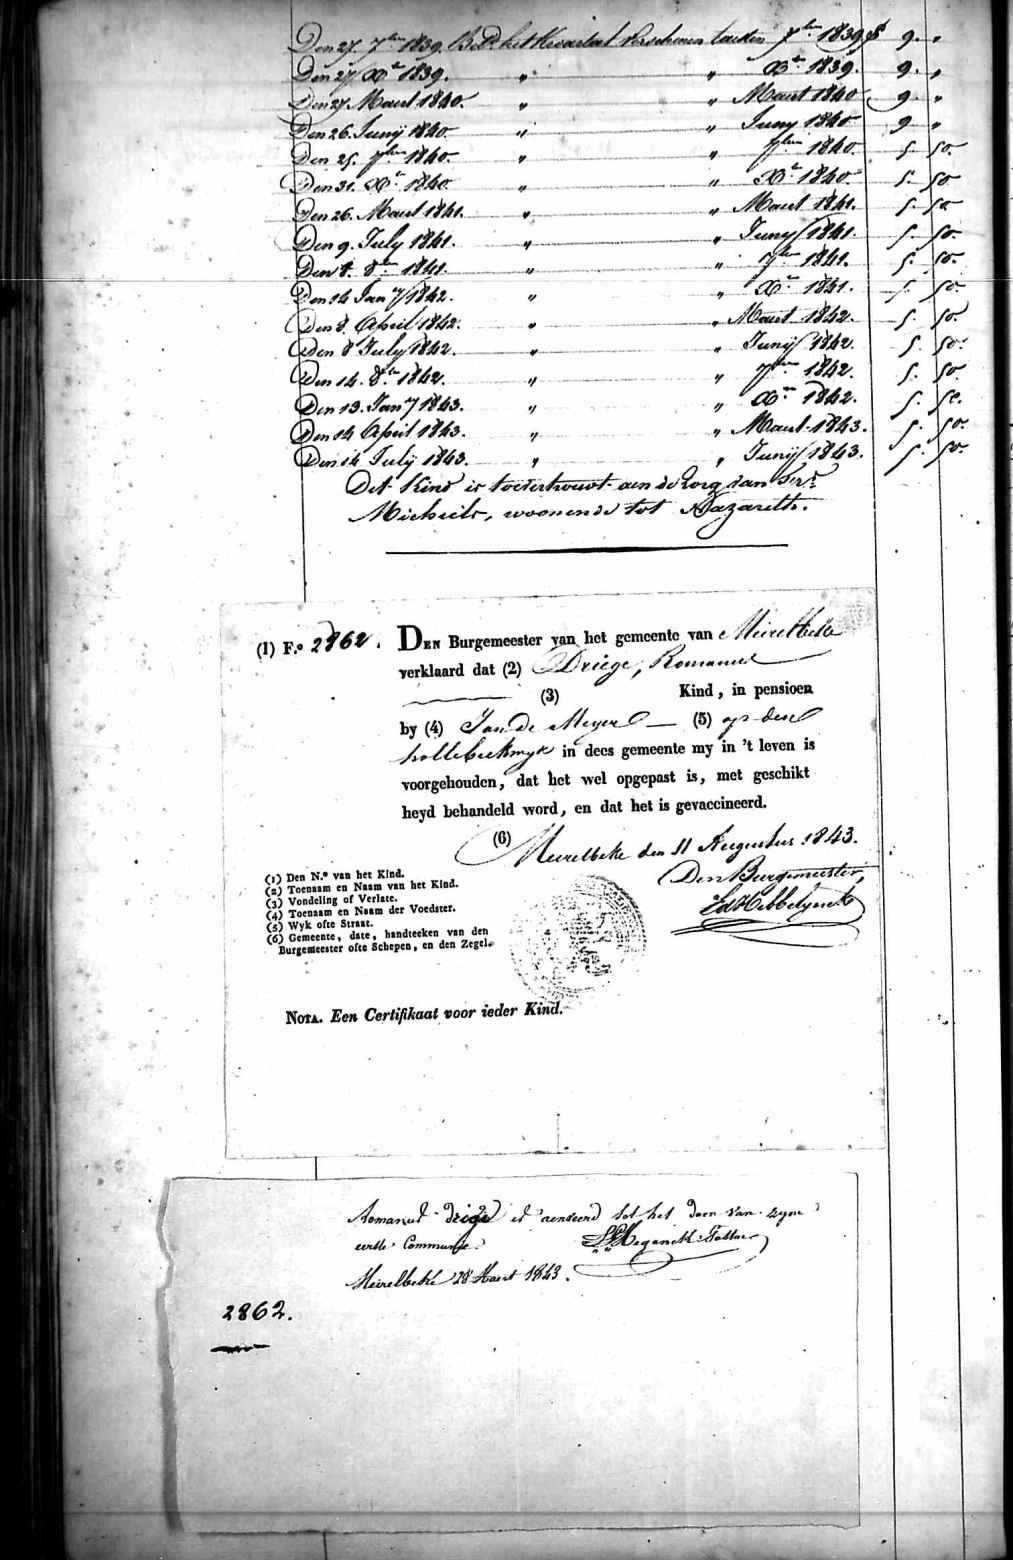 Den 27. 7ber 1839. Betd. het Kwartaal verschenen 7ber 1839. 9. "
Den 27 Xr 1839. " " Xr 1839. 9. "
Den 27 Maert 1840. " " Maert 1840 9 "
Den 26. Junij 1840. " " Juny 1840 9 "
Den 25. 7ber 1840. " " 7ber 1840. 5. 50.
Den 31. Xr 1840 " " Xr 1840. 5. 50
Den 26. Maert 1841. " " Maert 1841. 5. 50
Den 9. July 1841. " " Juny 1841. 5. 50.
Den 8. 8br 1841. " " 7ber 1841. 5. 50.
Den 14 Jany 1842. " " Xr 1841. 5. 50.
Den 8. April 1842. " " Maert 1842. 5. 50.
Den 8 July 1842. " " Junij 1842. 5. 50.
Den 14. 8br 1842. " " 7ber 1842. 5. 50.
Den 13. Jany 1843. " " Xr 1842. 5. 50.
Den 14 April 1843. " " Maert 1843. 5. 50.
Den 14 Julij 1843. " " Junij 1843. 5. 50.
Dit kind is toevertrouwt aen de zorg van
Michiels, woonende tot Nazareth.
(1) F.o 2862. DEN Burgemeester van het gemeente van Meirelbeke
verklaard dat (2) Driege, Romanuel
(3) Kind, in pensioen
by (4) Jan De Meyer (5) op den
hollebeekwyk in dees gemeente my in 't leven is
voorgehouden, dat het wel opgepast is, met geschikt
heyd behandeld word, en dat het is gevaccineerd.
(6) Meirelbeke den 11 Augustus 1843.
Den Burgemeester,
(1) Den N.o van het Kind.
(2) Toenaam en Naam van het Kind.
(3) Vondeling of Verlate.
(4) Toenaam en Naam der Voedster.
(5) Wyk ofte Straat.
(6) Gemeente, date, handteeken van den
Burgemeester ofte Schepen, en den Zegel.
NOTA. Een Certifikaat voor ieder Kind.
Romanuel driege is aenveerd tot het doen van zyne
eerste Communie.
Meirelbeke 28 Maert 1843.
2862.